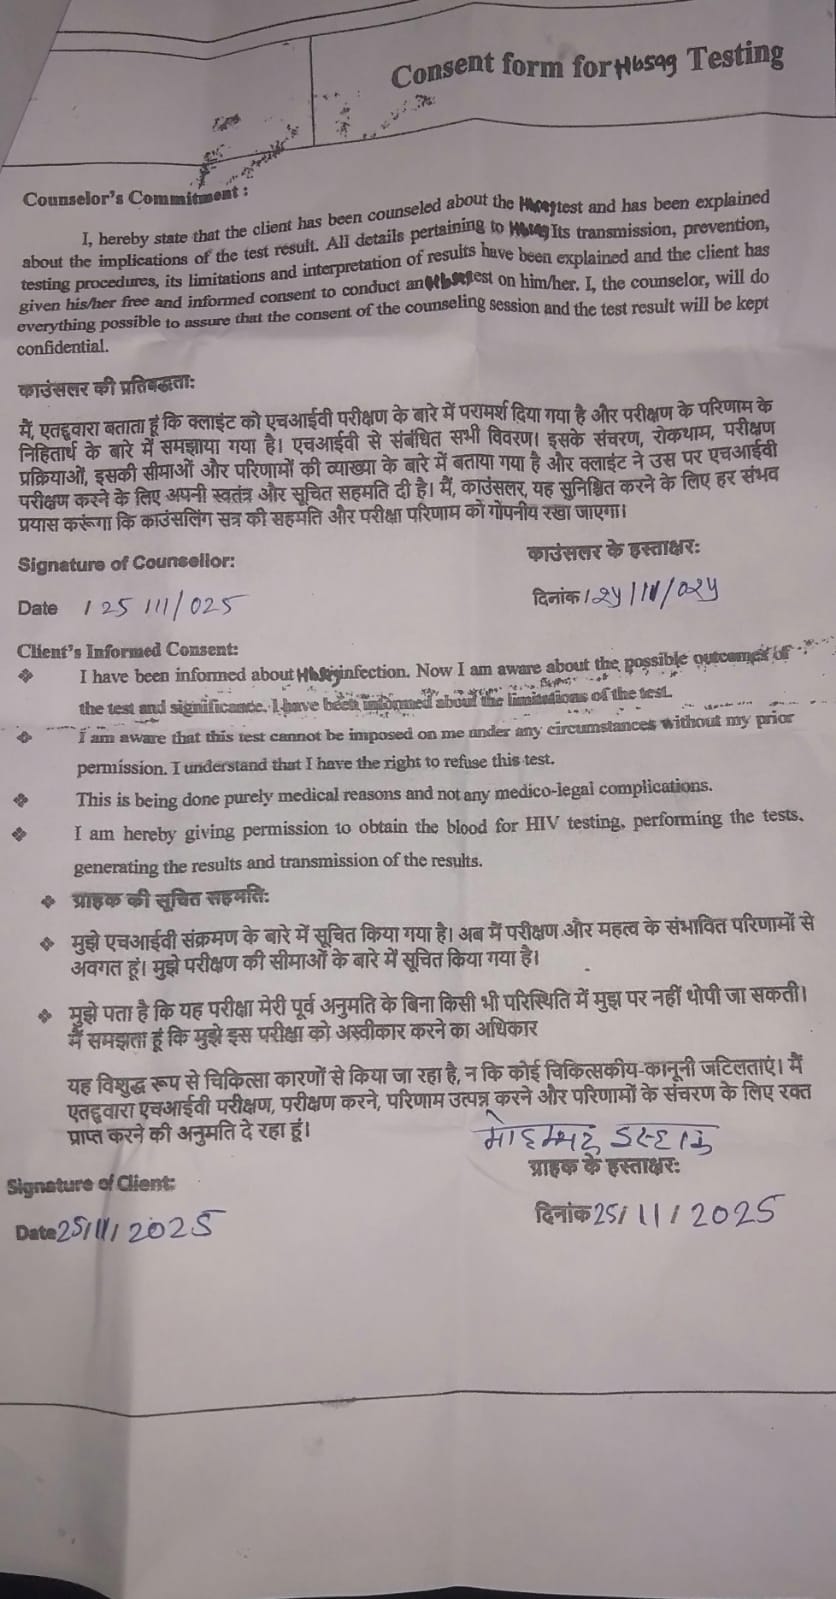 Consent form for Hbsag Testing
Counselor's Commitment :
I, hereby state that the client has been counseled about the Hbsag test and has been explained
about the implications of the test result. All details pertaining to Hbsag Its transmission, prevention,
testing procedures, its limitations and interpretation of results have been explained and the client has
given his/her free and informed consent to conduct an Hbsag test on him/her. I, the counselor, will do
everything possible to assure that the consent of the counseling session and the test result will be kept
confidential.
काउंसलर की प्रतिबद्धता:
मैं, एतद्द्वारा बताता हूं कि क्लाइंट को एचआईवी परीक्षण के बारे में परामर्श दिया गया है और परीक्षण के परिणाम के
निहितार्थ के बारे में समझाया गया है। एचआईवी से संबंधित सभी विवरण। इसके संचरण, रोकथाम, परीक्षण
प्रक्रियाओं, इसकी सीमाओं और परिणामों की व्याख्या के बारे में बताया गया है और क्लाइंट ने उस पर एचआईवी
परीक्षण करने के लिए अपनी स्वतंत्र और सूचित सहमति दी है। मैं, काउंसलर, यह सुनिश्चित करने के लिए हर संभव
प्रयास करूंगा कि काउंसलिंग सत्र की सहमति और परीक्षा परिणाम को गोपनीय रखा जाएगा।
Signature of Counsellor: काउंसलर के हस्ताक्षर:
Date / 25 /11/025 दिनांक
Client's Informed Consent:
❖ I have been informed about Hbsag infection. Now I am aware about the possible outcomes of
the test and significance. I have been informed about the limitations of the test.
❖ I am aware that this test cannot be imposed on me under any circumstances without my prior
permission. I understand that I have the right to refuse this test.
❖ This is being done purely medical reasons and not any medico-legal complications.
❖ I am hereby giving permission to obtain the blood for HIV testing, performing the tests,
generating the results and transmission of the results.
❖ ग्राहक की सूचित सहमति:
❖ मुझे एचआईवी संक्रमण के बारे में सूचित किया गया है। अब मैं परीक्षण और महत्व के संभावित परिणामों से
अवगत हूं। मुझे परीक्षण की सीमाओं के बारे में सूचित किया गया है।
❖ मुझे पता है कि यह परीक्षा मेरी पूर्व अनुमति के बिना किसी भी परिस्थिति में मुझ पर नहीं थोपी जा सकती।
मैं समझता हूं कि मुझे इस परीक्षा को अस्वीकार करने का अधिकार
यह विशुद्ध रूप से चिकित्सा कारणों से किया जा रहा है, न कि कोई चिकित्सकीय-कानूनी जटिलताएं। मैं
एतद्द्वारा एचआईवी परीक्षण, परीक्षण करने, परिणाम उत्पन्न करने और परिणामों के संचरण के लिए रक्त
प्राप्त करने की अनुमति दे रहा हूं।
ग्राहक के हस्ताक्षर:
Signature of Client:
Date 25/11/2025 दिनांक 25/11/2025